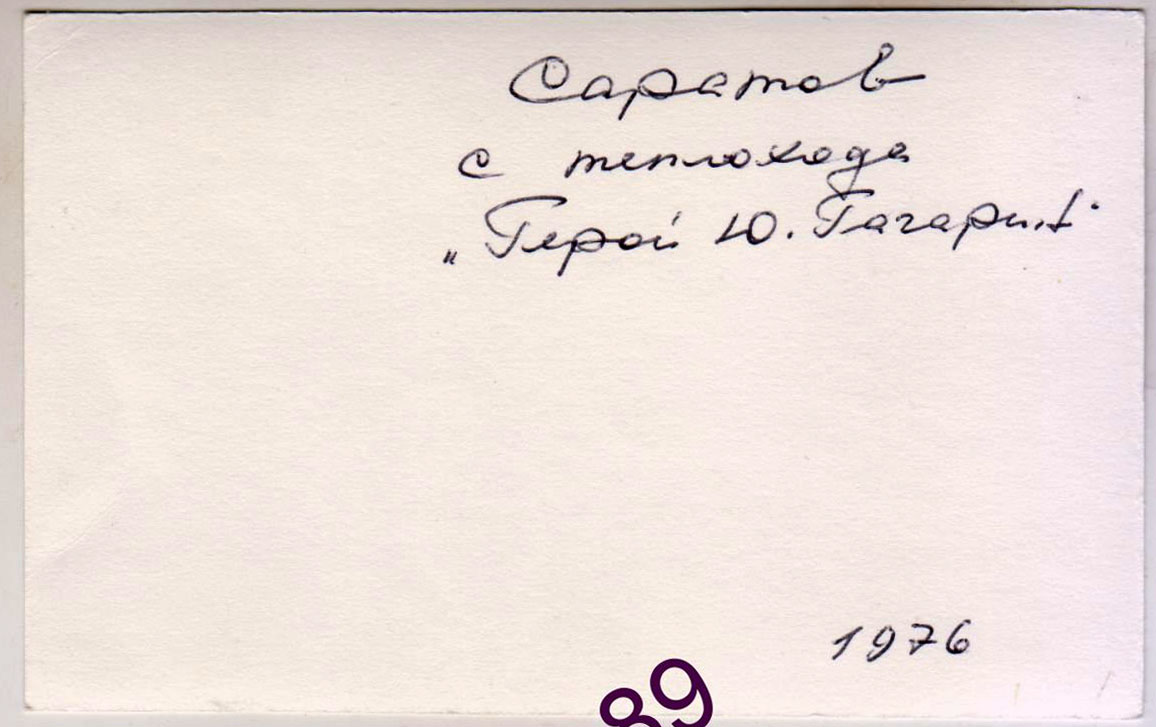 Саратов
с теплохода
„Герой Ю. Гагарин"
1976
89